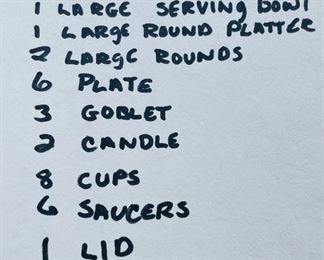 1 LARGE SERVING BOWl
1 LARGE ROUND PLATTER
2 LARGE ROUNDS
6 PLATE
3 GOBLET
2 CANDLE
8 CUPS
6 SAUCERS
1 LID